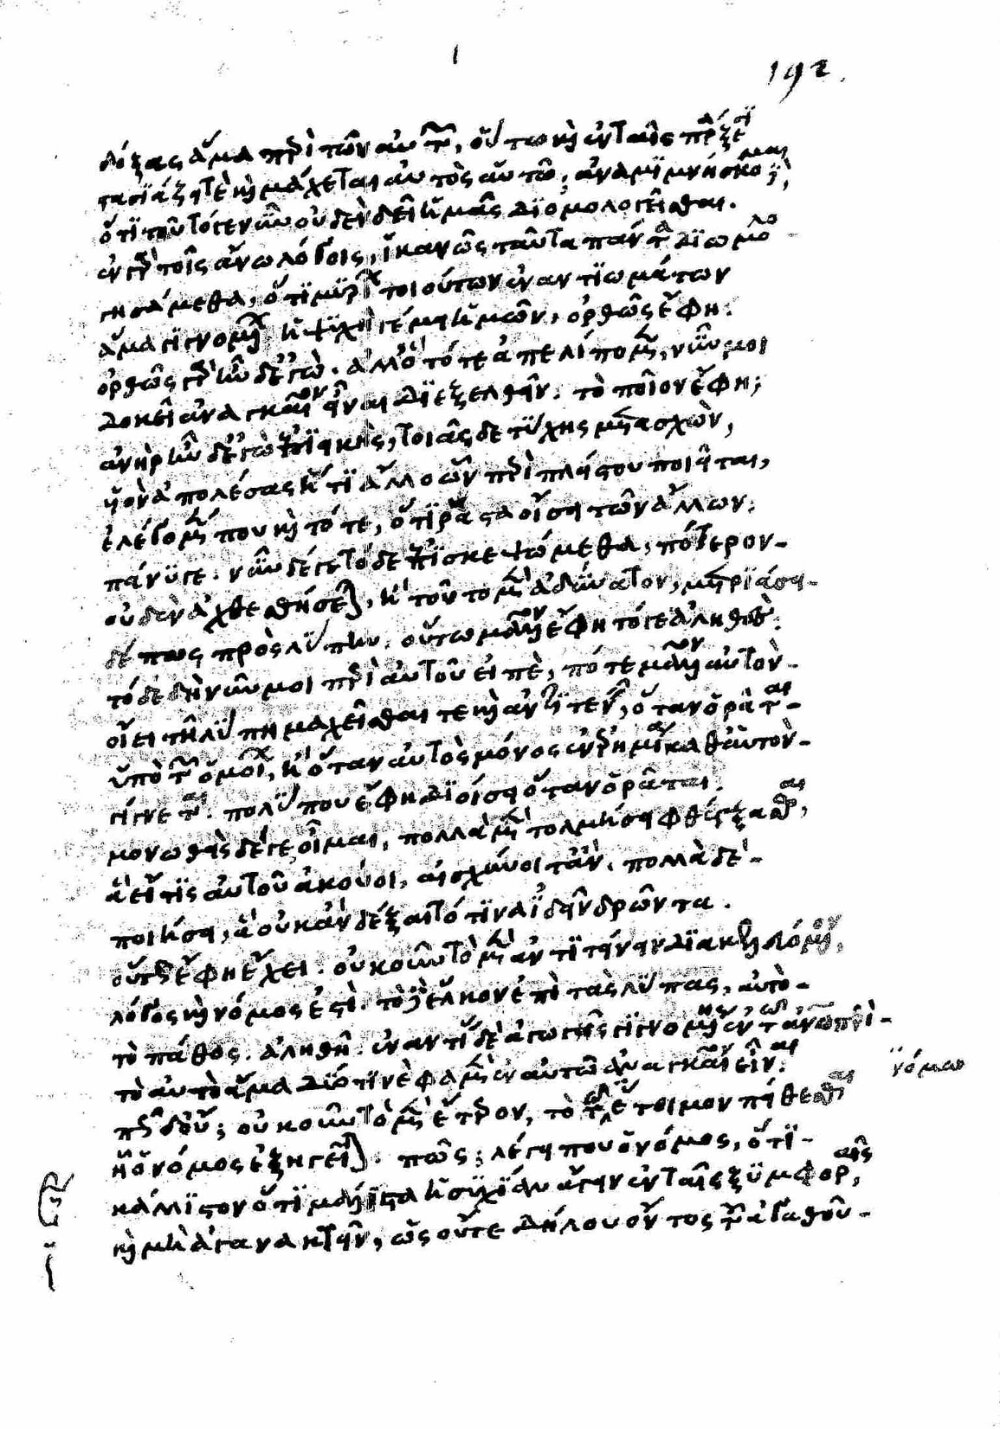 192.
δόξας ἅμα περὶ τῶν αὐτῶν, οὕτω καὶ ἐν ταῖς πράξεσι
στασιάζει τὲ καὶ μάχεται αὐτὸς αὑτῷ; ἀναμιμνήσκομαι δὲ,
ὅτι τοῦτό γε νῦν οὐδὲν δεῖ ἡμᾶς διομολογεῖσθαι.
ἐν γὰρ τοῖς ἄνω λόγοις, ἱκανῶς ταῦτα πάντα διωμολο-
γησάμεθα, ὅτι μυρίων τοιούτων ἐναντιωμάτων
ἅμα γιγνομένων ἡ ψυχὴ γέμει ἡμῶν, ὀρθῶς ἔφη.
ὀρθῶς γὰρ ἦν δ' ἐγώ. ἀλλ' ὃ τότε ἀπελίπομεν, νῦν μοι
δοκεῖ ἀναγκαῖον εἶναι διεξελθεῖν. τὸ ποῖον ἔφη;
ἀνὴρ ἦν δ' ἐγὼ ἐπιεικὴς, τοιᾶσδε τύχης μετασχὼν,
υἱὸν ἀπολέσας ἤ τι ἄλλο ὧν περὶ πλείστου ποιεῖται,
ἐλέγομέν που καὶ τότε, ὅτι ῥᾷστα οἴσει τῶν ἄλλων.
πάνυ γε. νῦν δέ γε τόδε ἐπισκεψώμεθα, πότερον-
οὐδὲν ἀχθεσθήσεται, ἢ τοῦτο μὲν ἀδύνατον, μετριάσει-
δέ πως πρὸς λύπην. οὕτω μᾶλλον ἔφη τό γε ἀληθὲς.
τόδε δὴ νῦν μοι περὶ αὐτοῦ εἰπὲ, πότε μᾶλλον αὐτὸν-
οἴει τῇ λύπῃ μαχεῖσθαι τε καὶ ἀντιτείνειν, ὅταν ὁρᾶται-
ὑπὸ τῶν ὁμοίων, ἢ ὅταν αὐτὸς μόνος ἐν ἐρημίᾳ καθ' αὑτὸν-
γίγνεται. πολύ που ἔφη διοίσει ὅταν ὁρᾶται.
μονωθεὶς δέ γε οἶμαι, πολλὰ μὲν τολμήσει φθέγξασθαι,
ἃ εἴ τις αὐτοῦ ἀκούοι, αἰσχύνοιτ' ἄν. πολλὰ δὲ-
ποιήσει, ἃ οὐκ ἂν δέξαιτό τινα ἰδεῖν δρῶντα.
οὕτως ἔφη ἔχει. οὐκοῦν τὸ μὲν ἀντιτείνειν διακελευόμενον,
λόγος καὶ νόμος ἐστὶ. τὸ δὲ ἕλκον ἐπὶ τὰς λύπας, αὐτὸ-
τὸ πάθος. ἀληθῆ. ἐναντίας δὲ ἀγωγῆς γιγνομένης ἐν τῷ ἀνθρώπῳ περὶ-
τὸ αὐτὸ ἅμα δύο τινέ φαμὲν ἐν αὐτῷ ἀναγκαῖον εἶναι.
πῶς δ' οὔ; οὐκοῦν τὸ μὲν ἕτερον, τῷ νόμῳ ἕτοιμον πείθεσθαι
ᾗ ὁ νόμος ἐξηγεῖται. πῶς; λέγει που ὁ νόμος, ὅτι-
κάλλιστον ὅτι μάλιστα ἡσυχίαν ἄγειν ἐν ταῖς ξυμφοραῖς,
καὶ μὴ ἀγανακτεῖν, ὡς οὔτε δήλου ὄντος τοῦ ἀγαθοῦ-
νόμῳ